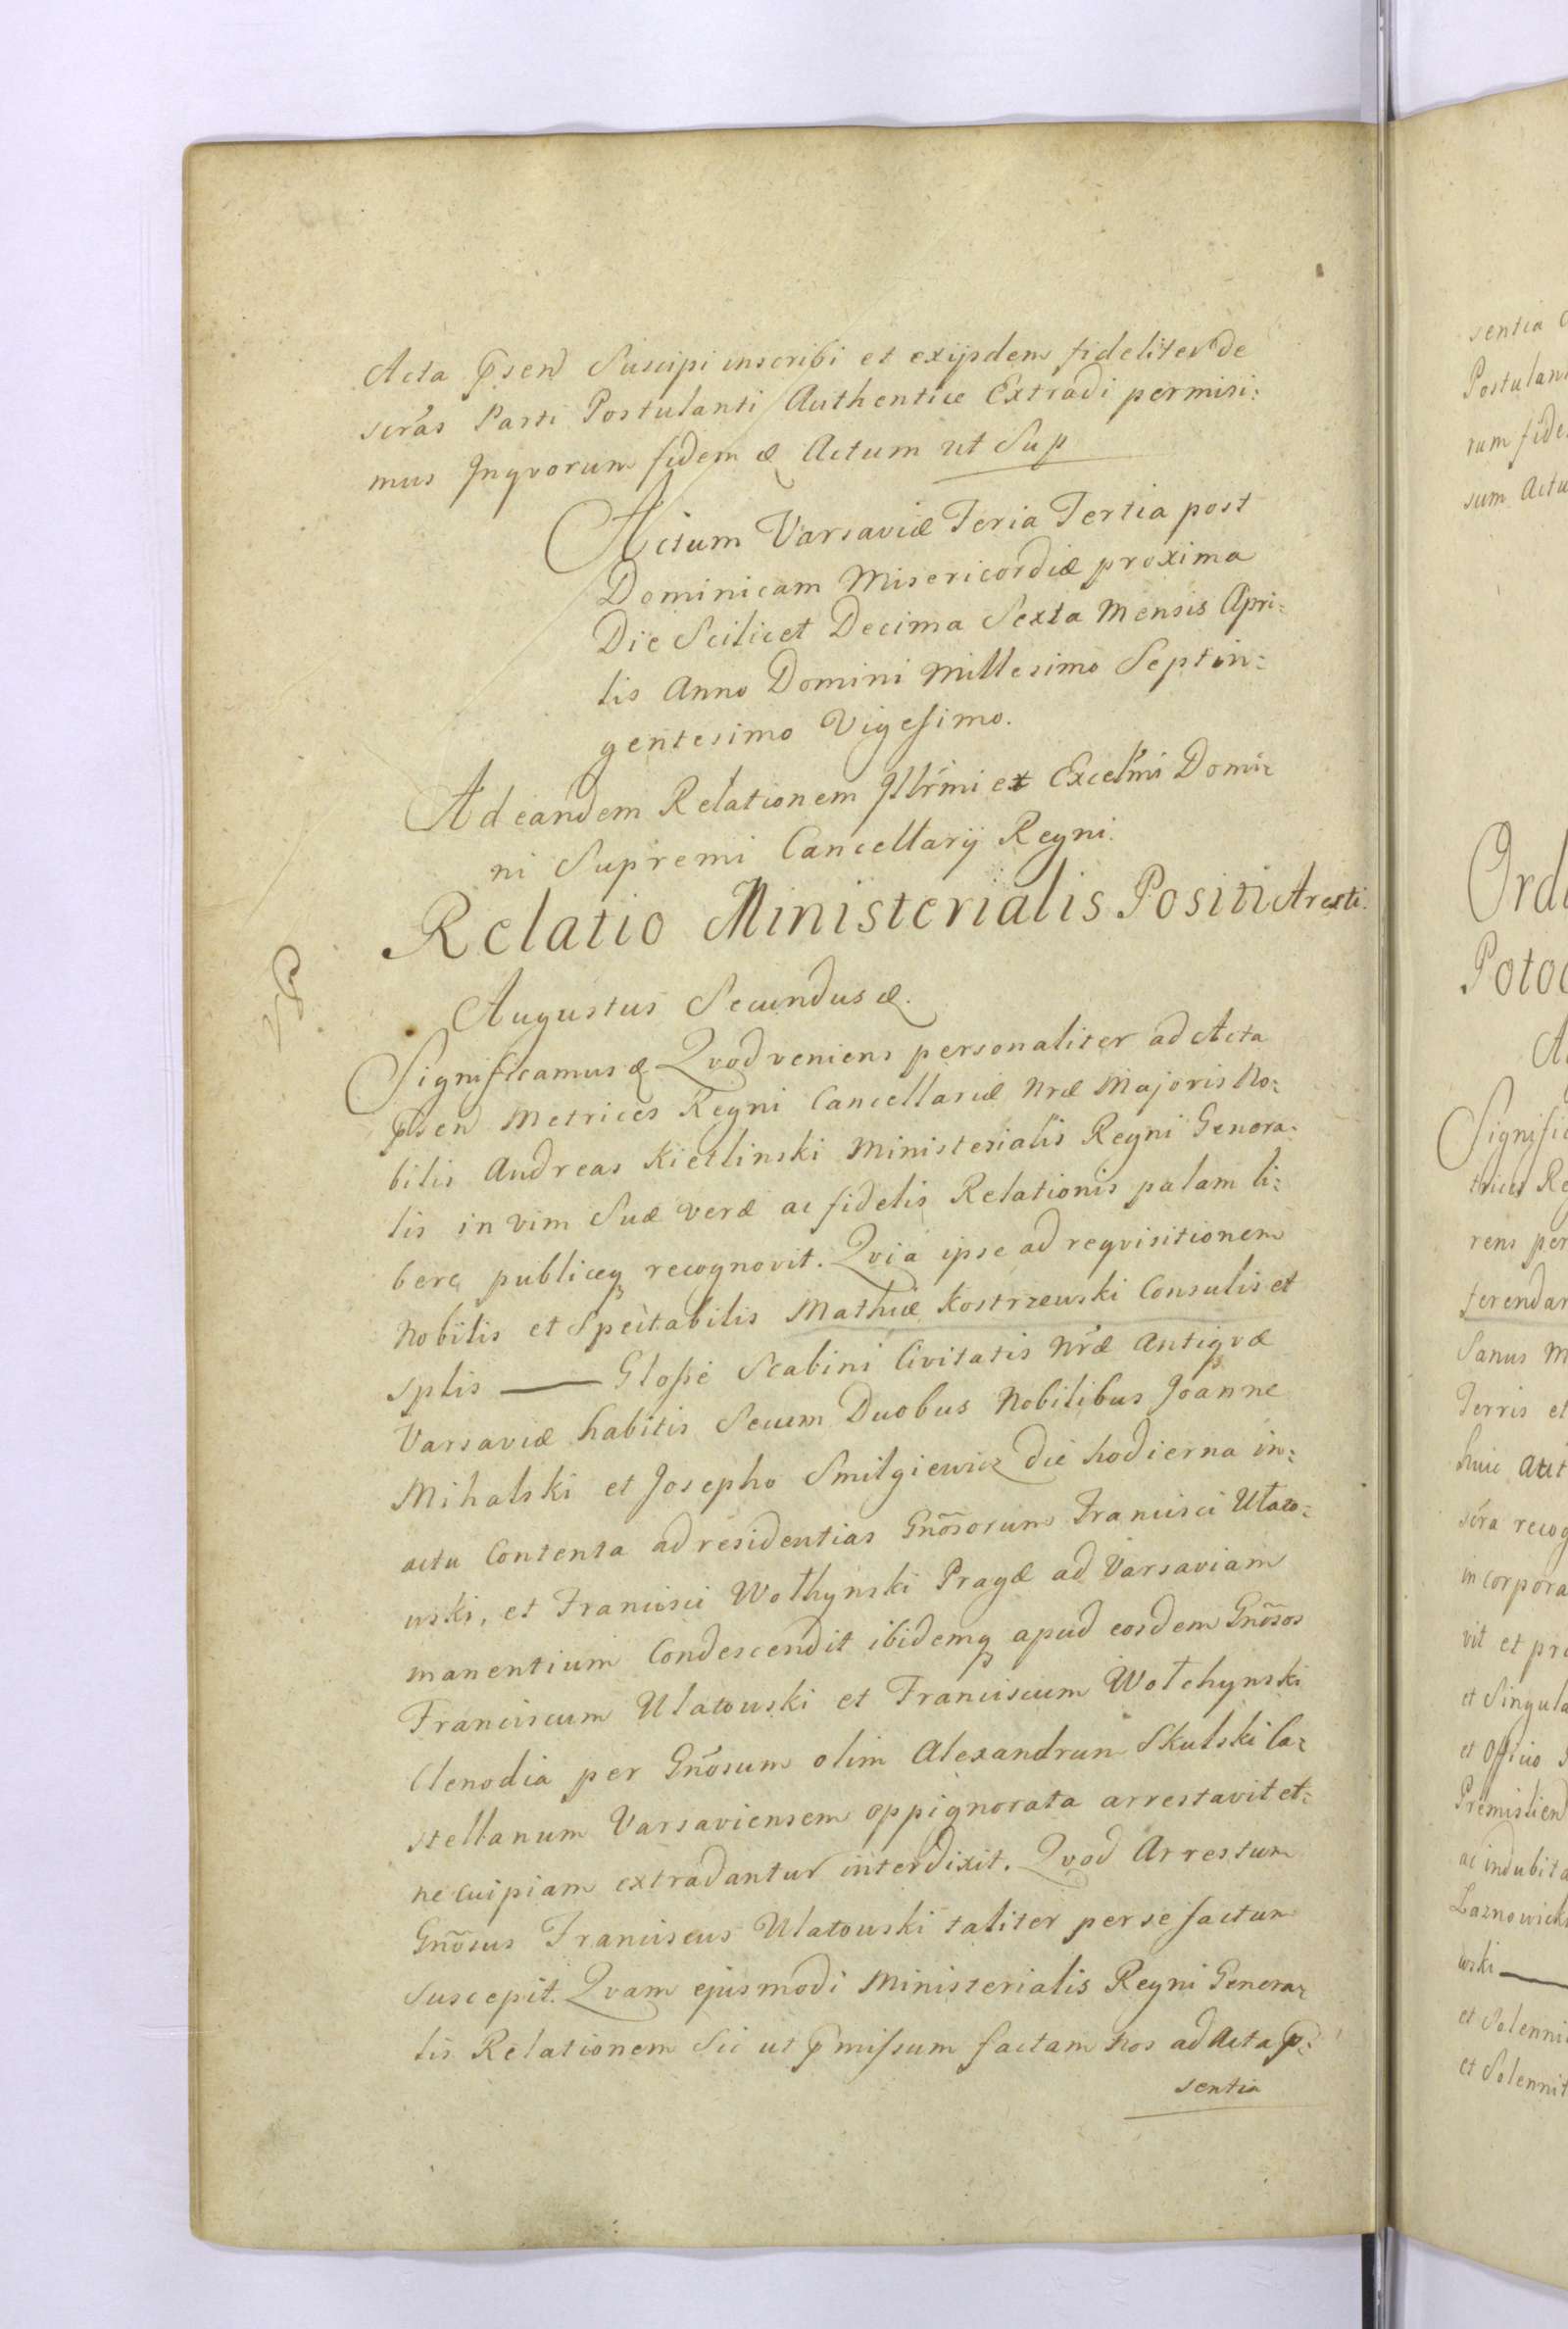 Acta p̃sen͂ Suscipi inscribi et exijsdem fideliter de
scr̃as Parti Postulanti Authentice Extradi permisi:
mus Inqvorum fidem & Actum ut Sup
Actum Varsaviæ Feria Tertia post
Dominicam Misericordiæ proxima
Die Scilicet Decima Sexta Mensis Apri:
lis Anno Domini Millesimo Septin:
gentesimo Vigesimo.
Ad eandem Relationem Illr̃mi et Excel̃mi Domi:
ni Supremi Cancellarij Regni.
Relatio Ministerialis Positi Aresti.
Augustus Secundus &.
Significamus & Qvod veniens personaliter ad Acta
p̃sen͂ Metrices Regni Cancellariæ Nr̃æ Majoris No:
bilis Andreas Kietlinski Ministerialis Regni Genera:
lis in vim Suæ veræ ac fidelis Relationis palam li:
bere publiceq recognovit. Qvia ipse ad reqvisitionem
Nobilis et Spectabilis Mathiæ Kostrzewski Consulis et
Sptis — Glosse Scabini Civitatis Nr̃æ Antiqvæ
Varsaviæ habitis Secum Duobus Nobilibus Joanne
Mihalski et Josepho Smilgiewicz die hodierna in:
actu Contenta ad residentias Gñosorum Francisci Ulato:
wski, et Francisci Wołhynski Pragæ ad Varsaviam
manentium Condescendit ibidemq apud eosdem Gñosos
Franciscum Ulatowski et Franciscum Wołchynski
Clenodia per Gñosum olim Alexandrum Skulski Ca:
stellanum Varsaviensem oppignorata arrestavit et:
ne cuipiam extradantur interdixit. Qvod Arrestum
Gñosus Franciscus Ulatowski taliter per se factum
Suscepit. Qvam ejusmodi Ministerialis Regni Genera:
lis Relationem Sic ut p̃missum factam Nos ad Acta p̃:
sentia
sentia
Postulan
rum fide
sum Actu
Ord
Potoc
Signific
trices Re
rens per
ferendar
Sanus M
Terris et
huic Act
scr̃a recog
incorpora
vit et pro
et Singula
et Officio
Premislien
ac indubita
Łaznowick
wski —
et Solenni
et Solennit